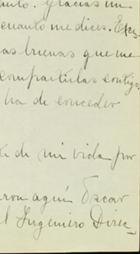 anto. Gracias mi
cuanto me dices. Eres
as buenas que me
compartirlas contigo
ha de conceder
de mi vida por
aron aquí Oscar
l Ingeniero Direc-